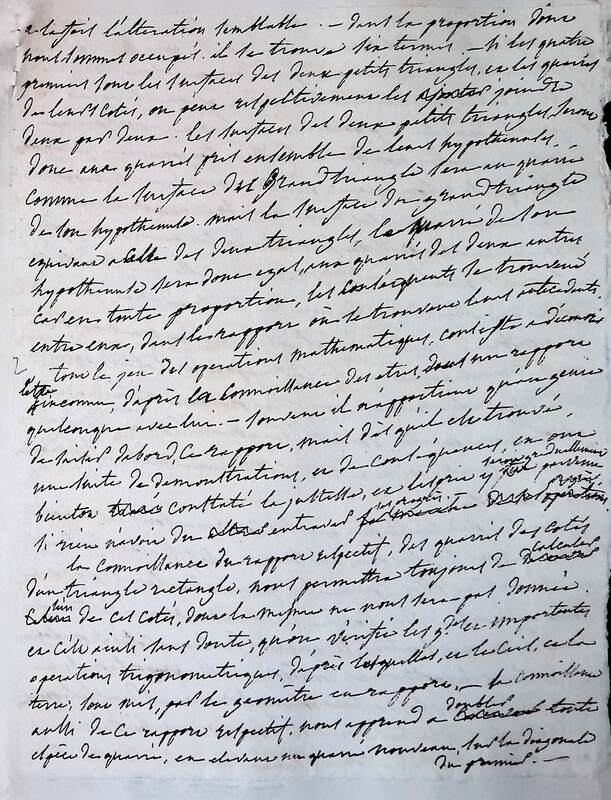 a la fois l'alteration semblable. — dans la proportion dont
nous sommes occupés. il se trouve six termes. — si les quatre
premiers sont les surfaces des deux petits triangles, et les quarrés
de leurs cotés, on peut respectivement les joindre
deux par deux. les surfaces des deux petits triangles, seront
donc aux quarrés pris ensemble de leurs hypothenuses.
comme la surface du grand triangle sera au quarré
de son hypothenuse. mais la surface du grand triangle
equivaut a celle des deux triangles, le quarré de son
hypothenuse sera donc egal, aux quarrés des deux autres
car en toute proportion, les consequents se trouvent
entre eux, dans le rapport où se trouvent leurs antecedents.
tout le jeu des operations mathematiques, consiste a decouvrir
l'inconnu, d'après la connoissance des etres, dont un rapport
quelconque avec lui. — souvent il n'appartient qu'au genie
de saisir d'abord, ce rapport, mais dès qu'il est trouvé,
une suite de demonstrations, et de consequences, en ont
bientot constaté la justesse, et l'esprit y seroit parvenu
si rien n'avoit entravé les progrès
la connoissance du rapport respectif, des quarrés des cotés
d'un triangle rectangle, nous permettra toujours de calculer
l'un de ces cotés, dont la mesure ne nous sera pas donnée.
et c'est ainsi sans doute, qu'on vérifie les importantes
operations trigonometriques, d'après lesquelles, et le ciel, et la
terre, sont mis, par le geometre en rapport. — la connoissance
aussi de ce rapport respectif. nous apprend a doubler toute
espèce de quarré, en elevant un quarré nouveau, sur la diagonale
du premier. —